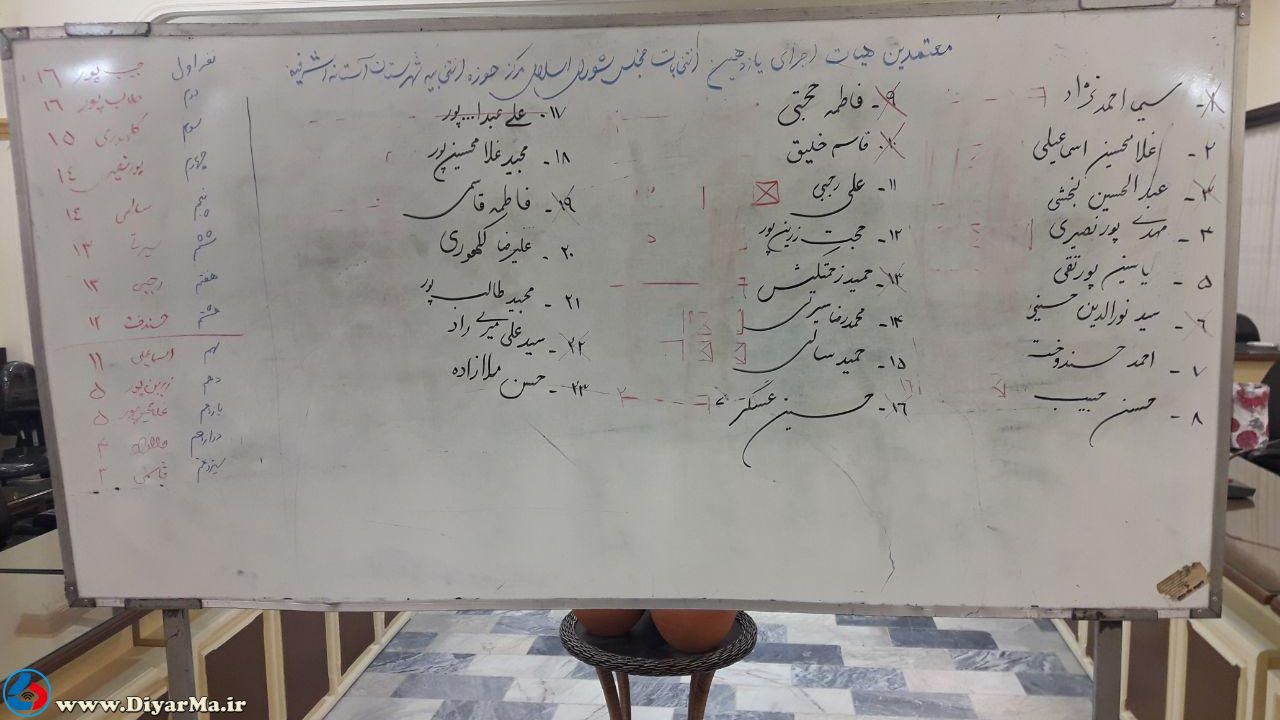 معتمدین هیات اجرای یازدهمین انتخابات مجلس شورای اسلامی مرکز حوزه انتخابیه شهرستان آستانه اشرفیه
۱- سیما احمد نژاد
۲- غلامحسین اسماعیلی
۳- عبدالحسین گنجشی
۴- مهدی پورنصیری
۵- یاسین پورتقی
۶- سید نورالدین حسینی
۷- احمد حسندوخت
۸- حسن حبیب
۹- فاطمه حجتی
۱۰- قاسم خلیق
۱۱- علی رجبی
۱۲- حجت زرین پور
۱۳- حمید زحمتکش
۱۴- محمدرضا سیرتی
۱۵- حمید سالمی
۱۶- حسین عسگر
۱۷- علی عبدا...پور
۱۸- مجید غلامحسین پور
۱۹- فاطمه قاسمی
۲۰- علیرضا کلهوری
۲۱- مجید طالب پور
۲۲- سیدعلی میری راد
۲۳- حسن ملازاده
نفر اول ۱۶
دوم طالب پور ۱۶
سوم ۱۵
چهارم ۱۴
پنجم سالمی ۱۴
ششم سیرتی ۱۳
هفتم رجبی ۱۳
هشتم حسندخت ۱۲
نهم اسماعیلی ۱۱
دهم زرین پور ۵
یازدهم غلامحسین پور ۵
دوازدهم ۴
سیزدهم قاسمی ۳
www.DiyarMa.ir